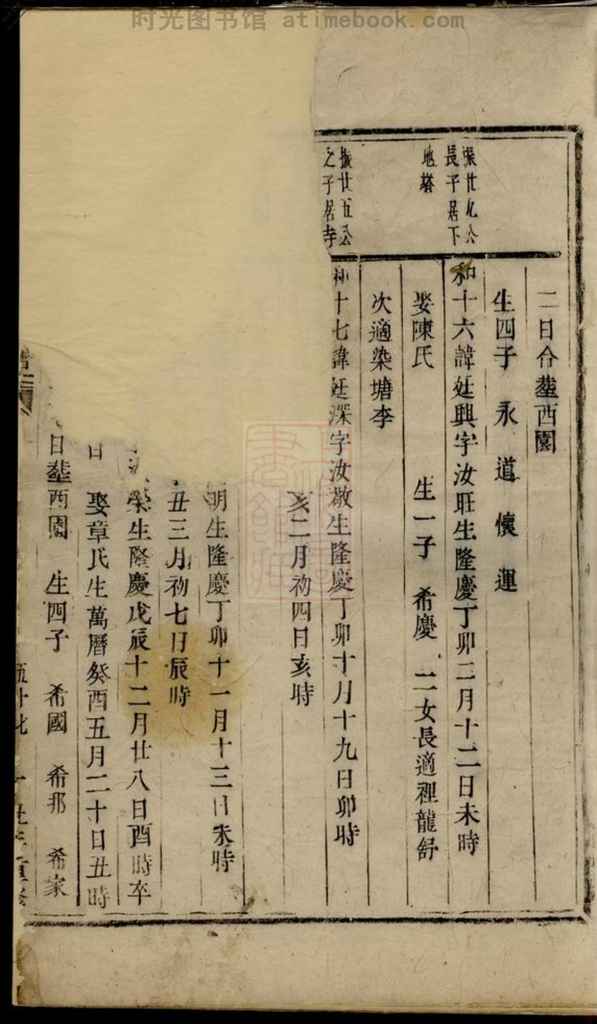 时光图书馆 atimebook.com
二日合塟西園
生四子 永 道 懷 運
振廿九公
長子居下
地塔
和十六諱廷興字汝旺生隆慶丁卯二月十二日未時
娶陳氏 生一子 希慶 二女長適裡龍舒
次適染塘李
振廿五公
之子居寺
和十七諱廷深字汝敬生隆慶丁卯十月十九日卯時
亥二月初四日亥時
明生隆慶丁卯十一月十三日未時
丑三月初七日辰時
榮生隆慶戊辰十二月廿八日酉時卒
日 娶章氏生萬曆癸酉五月二十日丑時
日塟西園 生四子 希國 希邦 希家